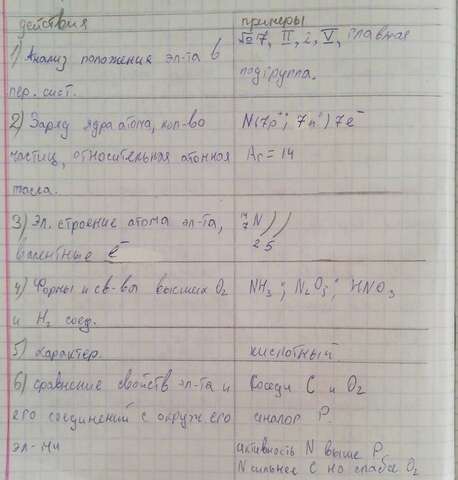 действия
примеры
1) Анализ положения эл-та в
пер. сист.
№ 7, II, 2, V, главная
подгруппа.
2) Заряд ядра атома, кол-во
частиц, относительная атомная
масса.
N(7p⁺; 7n°) 7e⁻
Ar = 14
3) Эл. строение атома эл-та,
валентные e⁻
¹⁴₇N ) )
2 5
4) Формы и св-ва высших O₂
и H₂ соед.
NH₃; N₂O₅; HNO₃
5) характер.
кислотный.
6) сравнение свойств эл-та и
его соединений с окруж. его
эл-ми
Соседи C и O₂
аналог P.
активность N выше P
N сильнее C но слабее O₂